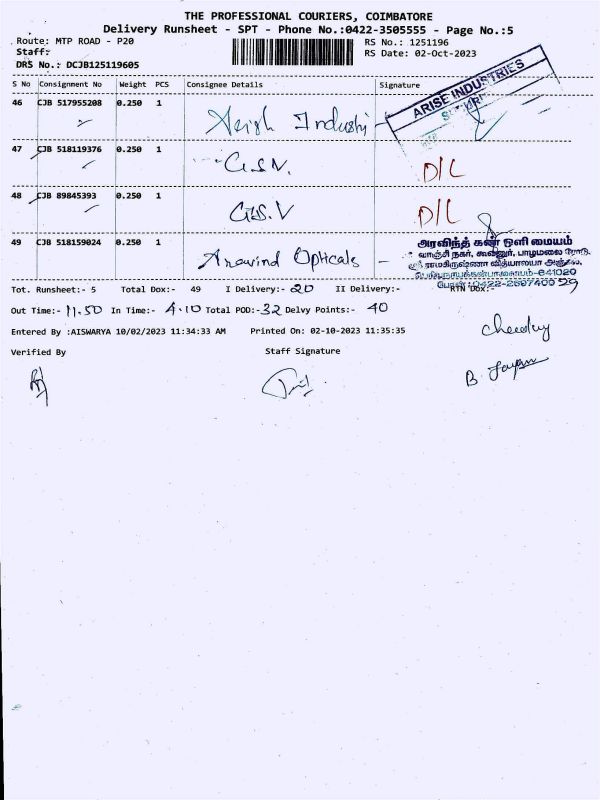 THE PROFESSIONAL COURIERS, COIMBATORE
Delivery Runsheet - SPT - Phone No.:0422-3505555 - Page No.:5
Route: MTP ROAD - P20
RS No.: 1251196
Staff:
RS Date: 02-Oct-2023
DRS No.: DCJB125119605
S No Consignment No Weight PCS Consignee Details Signature
46 CJB 517955208 0.250 1
ARISE INDUSTRIES
47 CJB 518119376 0.250 1 G.S.N. D/L
48 CJB 89845393 0.250 1 G.S.V D/L
49 CJB 518159024 0.250 1 Aravind Opticals -
அரவிந்த் கண் ஒளி மையம்
வாஞ்சி நகர், பழமலை ரோடு,
ராமகிருஷ்ணா வித்யாலயா அஞ்சல்,
பெரியநாயக்கன்பாளையம்-641020
Tot. Runsheet:- 5 Total Dox:- 49 I Delivery:- 20 II Delivery:- RTN Dox:- 29
Out Time:- 11.50 In Time:- 4.10 Total POD:- 32 Delvy Points:- 40
Entered By :AISWARYA 10/02/2023 11:34:33 AM Printed On: 02-10-2023 11:35:35
Verified By Staff Signature